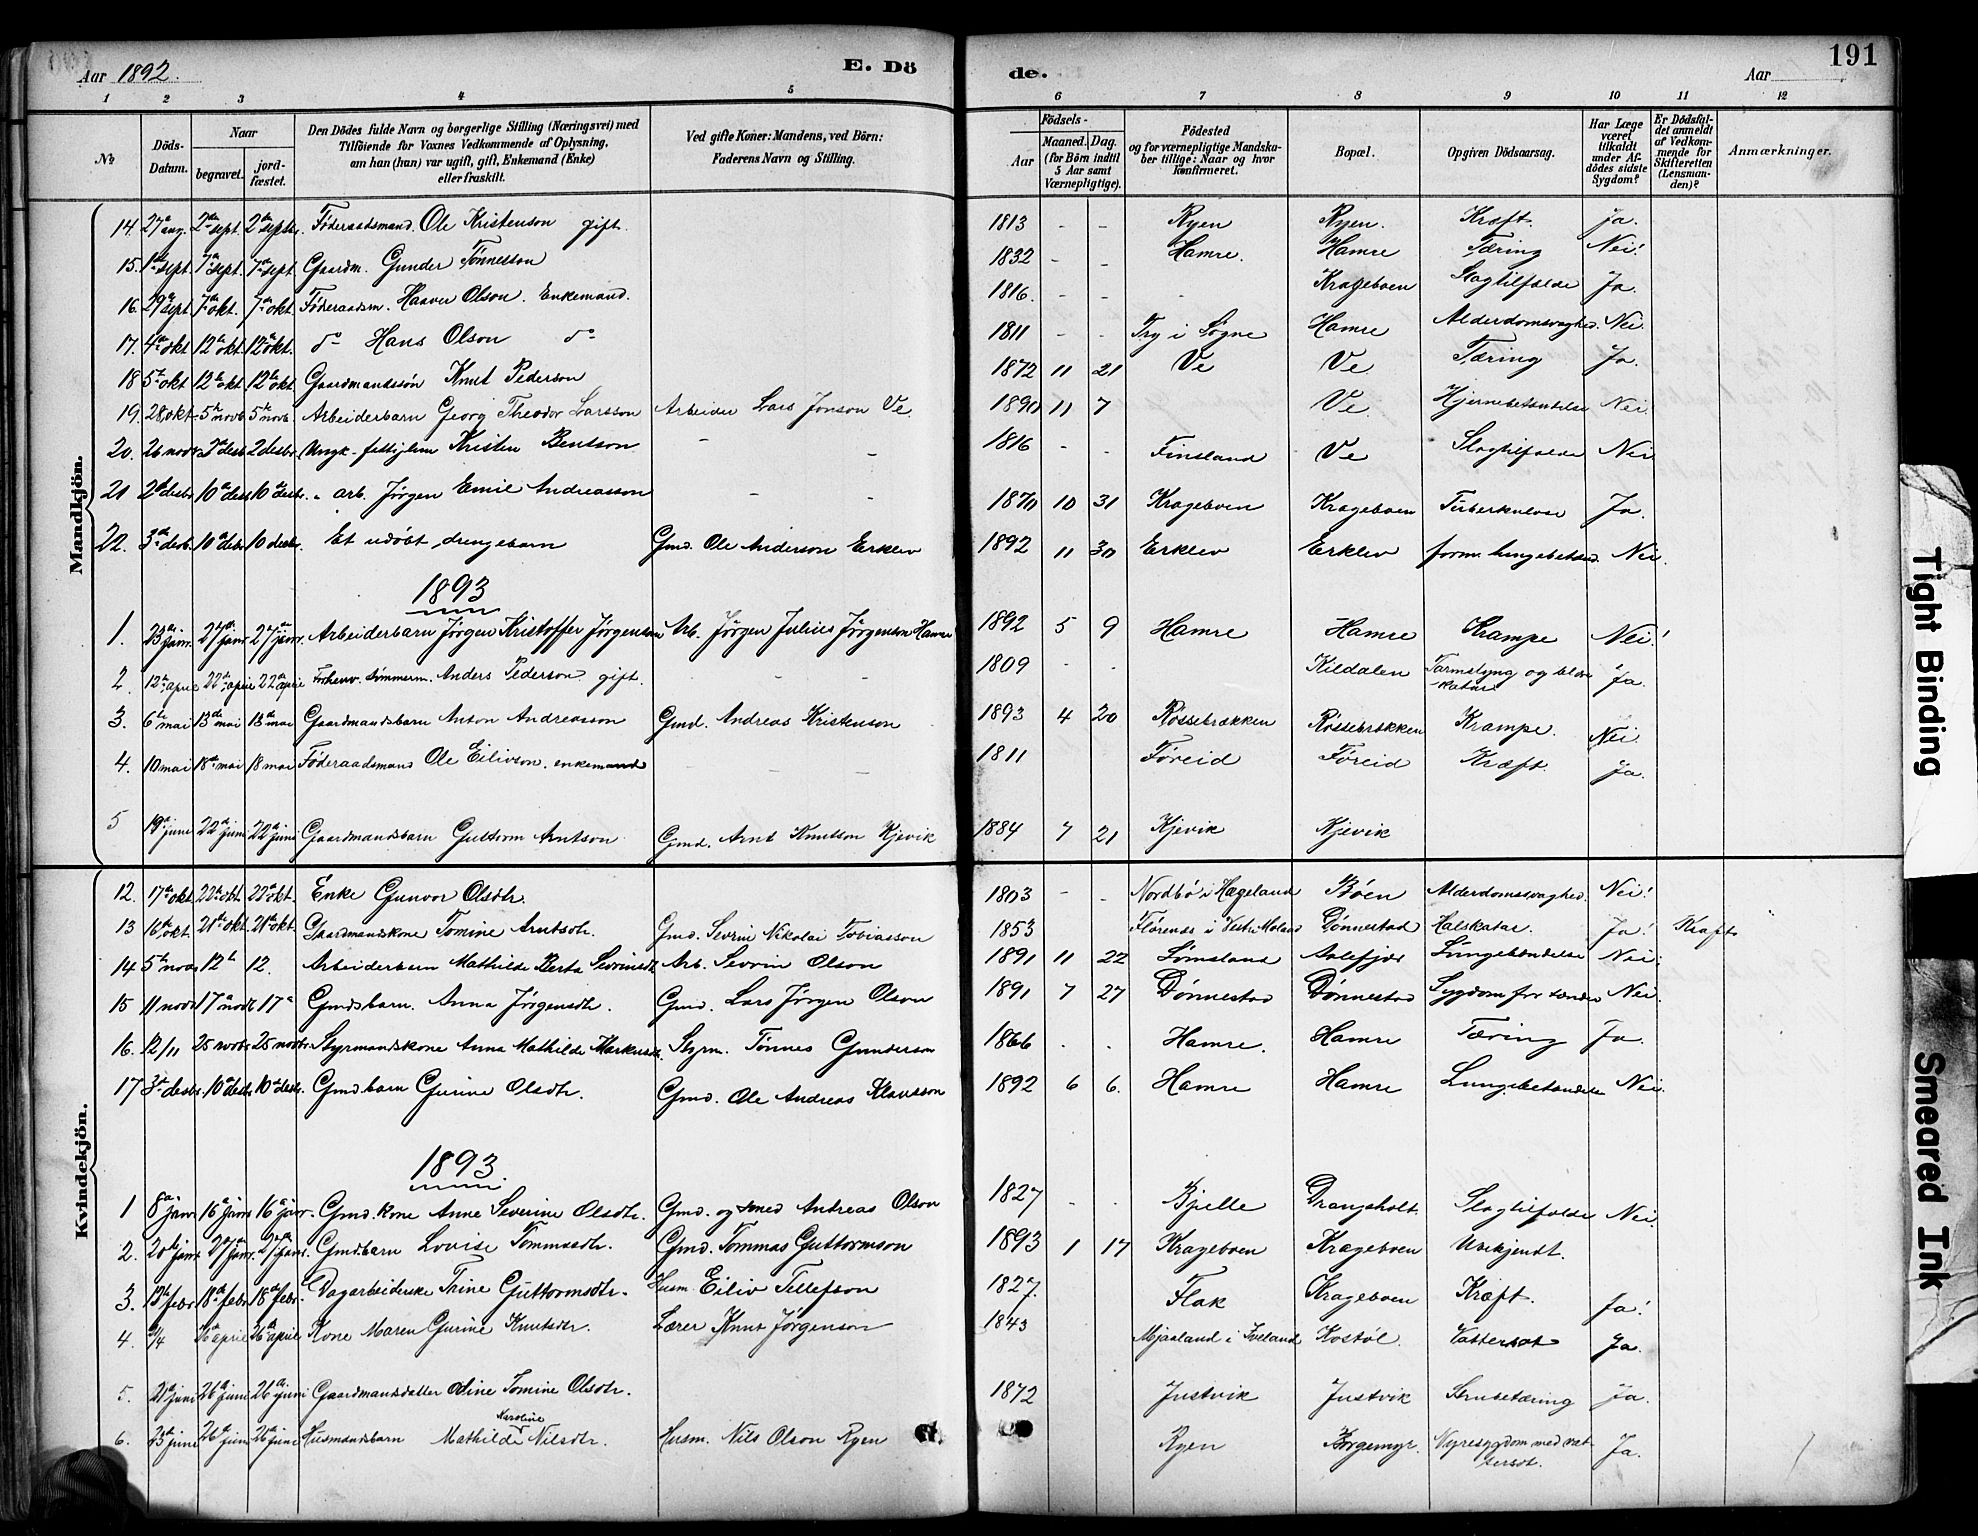 Aar 1892. E. Dö de. Aar 191
1 2 3 4 5 6 7 8 9 10 11 12
№ Döds-Datum. Naar begravet. jordfæstet. Den Dödes fulde Navn og borgerlige Stilling (Næringsvei) med Tilföiende for Voxnes Vedkommende af Oplysning, om han (hun) var ugift, gift, Enkemand (Enke) eller fraskilt. Ved gifte Koner: Mandens, ved Börn: Faderens Navn og Stilling. Födsels- Aar Maaned. Dag. (for Börn indtil 5 Aar samt Værnepligtige). Födested og for værnepligtige Mandskaber tillige: Naar og hvor konfirmeret. Bopæl. Opgiven Dödsaarsag. Har Læge været tilkaldt under Afdödes sidste Sygdom? Er Dödsfaldet anmeldt af Vedkommende for Skifteretten (Lensmanden)? Anmærkninger.
Mandkjön.
14. 27 aug. 2 sept. 2 septbr. Föderaadsmand Ole Kristenson gift. 1813 - - Ryen Ryen. Kræft. Ja.
15. 1 sept. 7 sept. 7 sept. Gaardm. Gunder Tönneson 1832 - - Hamre. Hamre Tæring Nei!
16. 29 sept. 7 okt. 7 okt. Föderaadsm. Haaver Olson. Enkemand. 1816. - - - Krageboen Slagtilfælde Ja.
17. 4 okt. 12 okt. 12 okt. do Hans Olson do 1811 - - Try i Søgne Hamre Alderdomsvaghed. Nei.
18 5 okt 12 okt. 12 okt. Gaardmandssön Knut Pederson 1872 11 21 Ve Ve Tæring Ja.
19. 28 okt. 5 novb. 5 novb. Arbeiderbarn Georg Theodor Larsson Arbeider Lars Jonson Ve 1890 11 7 Ve. Hjernebetændelse Nei.
20. 26 novr. 2 desb. 2 desbr. Ungk. fattiglem Kristen Bentson - - 1816 - - Finsland Ve Slagtilfælde Nei
21 2 desbr. 10 desb. 10 desbr. " arb. Jørgen Emil Andreasson - - 1870 10 31 Krageboen Krageboen Tuberkulose Ja.
22. 3 desb. 10 desb. 10 desbr. Et udöbt drengebarn Gmd. Ole Anderson Erklev 1892 11 30 Erklev Erklev form. lungebetænd. Nei.
1893
1. 23 janr. 27 janr. 27 janr. Arbeiderbarn Jørgen Kristoffer Jørgenson Arb. Jørgen Julius Jørgenson Hamre 1892 5 9 Hamre Hamre Krampe Nei!
2. 12 april 22 april 22 april Forhenv. tömmerm. Anders Pederson gift. - - 1809 - - Kildalen Tarmslyng og blære-katar Ja.
3. 6 mai 13 mai 13 mai Gaardmandsbarn Anton Andreasson Gmd. Andreas Kristenson 1893 4 20 Røssebrækken Røssebrækken Krampe. Nei.
4. 10 mai 18 mai 18 mai Föderaadsmand Ole Eilivson. enkemand - - - 1811 Föreid Föreid Kræft. Ja.
5 19 juni 22 juni 22 juni Gaardmandsbarn Guttorm Arntson Gmd. Arnt Knutson Kjevik 1884 7 21 Kjevik Kjevik
Kvindekjön.
12. 17 okt. 22 okt. 22 okt. Enke Gunvor Olsdtr. 1803 - - Nordbø i Hægeland Böen Alderdomssvaghed. Nei!
13 16 okt. 21 okt. 21 okt. Gaardmandskone Tomine Arntsdtr. Gmd. Sevrin Nikolai Tobiasson 1853 Flørenæs i Vestre Moland Dønnestad Halskatar. Ja! Kraft
14 5 nov. 12 12. Arbeiderbarn Mathilde Berta Sevrinsdt. Arb. Sevrin Olson 1891 11 22 Lømsland Aalefjær Lungebetændelse Nei.
15 11 novb 17 novb. 17 Gmdsbarn. Anna Jørgensdtr. Gmd. Lars Jørgen Olson 1891 7 27 Dønnestad Dønnestad Sygdom for tænder Nei.
16. 12/11 25 novbr. 25 novbr. Styrmandskone Anna Mathilde Markusdt. Styrm. Tönnes Gunderson 1866 . . Hamre. Hamre Tæring Ja.
17 3 desbr. 10 desb. 10 desbr. Gmd.barn Gurine Olsdtr. Gmd. Ole Andreas Klausson 1892 6 6. Hamre Hamre Lungebetændelse Nei.
1893.
1 8 janr. 16 janr. 16 janr. Gmd.kone Anne Severine Olsdtr. Gmd. og smed Andreas Olson 1827 . . Bjelle Drangsholt Slagtilfælde Nei.
2. 20 janr. 27 janr. 27 janr. Gmdsbarn Lovise Tommasdtr. Gmd. Tommas Guttormson 1893 1 17 Krageboen Krageboen Ubekjendt.
3. 13 febr. 18 febr. 18 febr. Dagarbeiderske Trine Guttormsdtr. Husm Eiliv Tellefson 1827. Flak Krageboen Kræft. Ja!
4. 26 april 26 april Kone Maren Gurine Knutsdtr. Lærer Knut Jørgenson 1843 Mjaaland i Iveland Kostøl. Vattersot Ja.
5. 21 juni 26 juni 26 juni Gaardmandsdatter Odine Tomine Olsdtr. 1872 Justvik Justvik Strubetæring Ja.
6. 23 juni 26 juni 26 juni Husmandsbarn Mathilde Karoline Nilsdtr. Husm. Nils Olson Ryen Ryen Borgemyr. Nyresygdom med vattersot. Ja.
Tight Binding
Smeared Ink